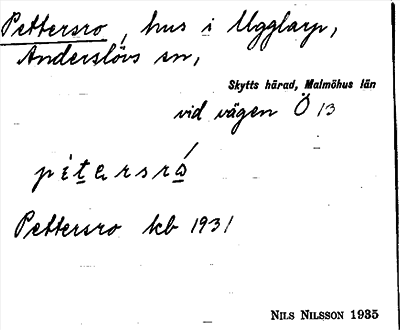 Pettersro, hus i Ugglarp,
Anderslövs sn,
Skytts härad, Malmöhus län
vid vägen Ö 13
pétersró
Pettersro kb 1931
NILS NILSSON 1935